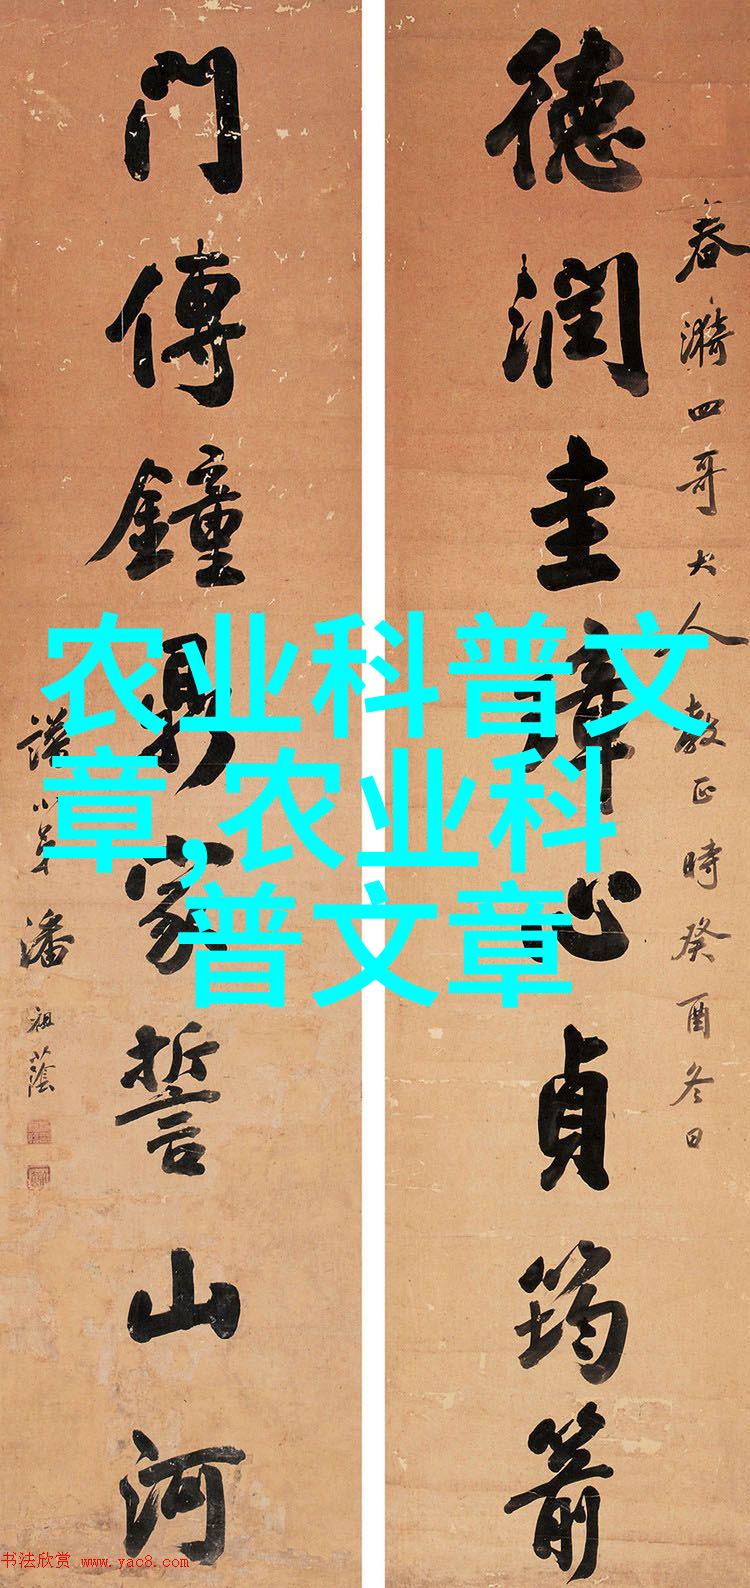 春漪四哥大人教正時癸酉冬日
德潤圭璋心貞筠箭
門傳鐘鼎家誓山河
譜小弟潘祖蔭
农业科普文
章,农业科
普文章
书法欣赏 www.yac8.com